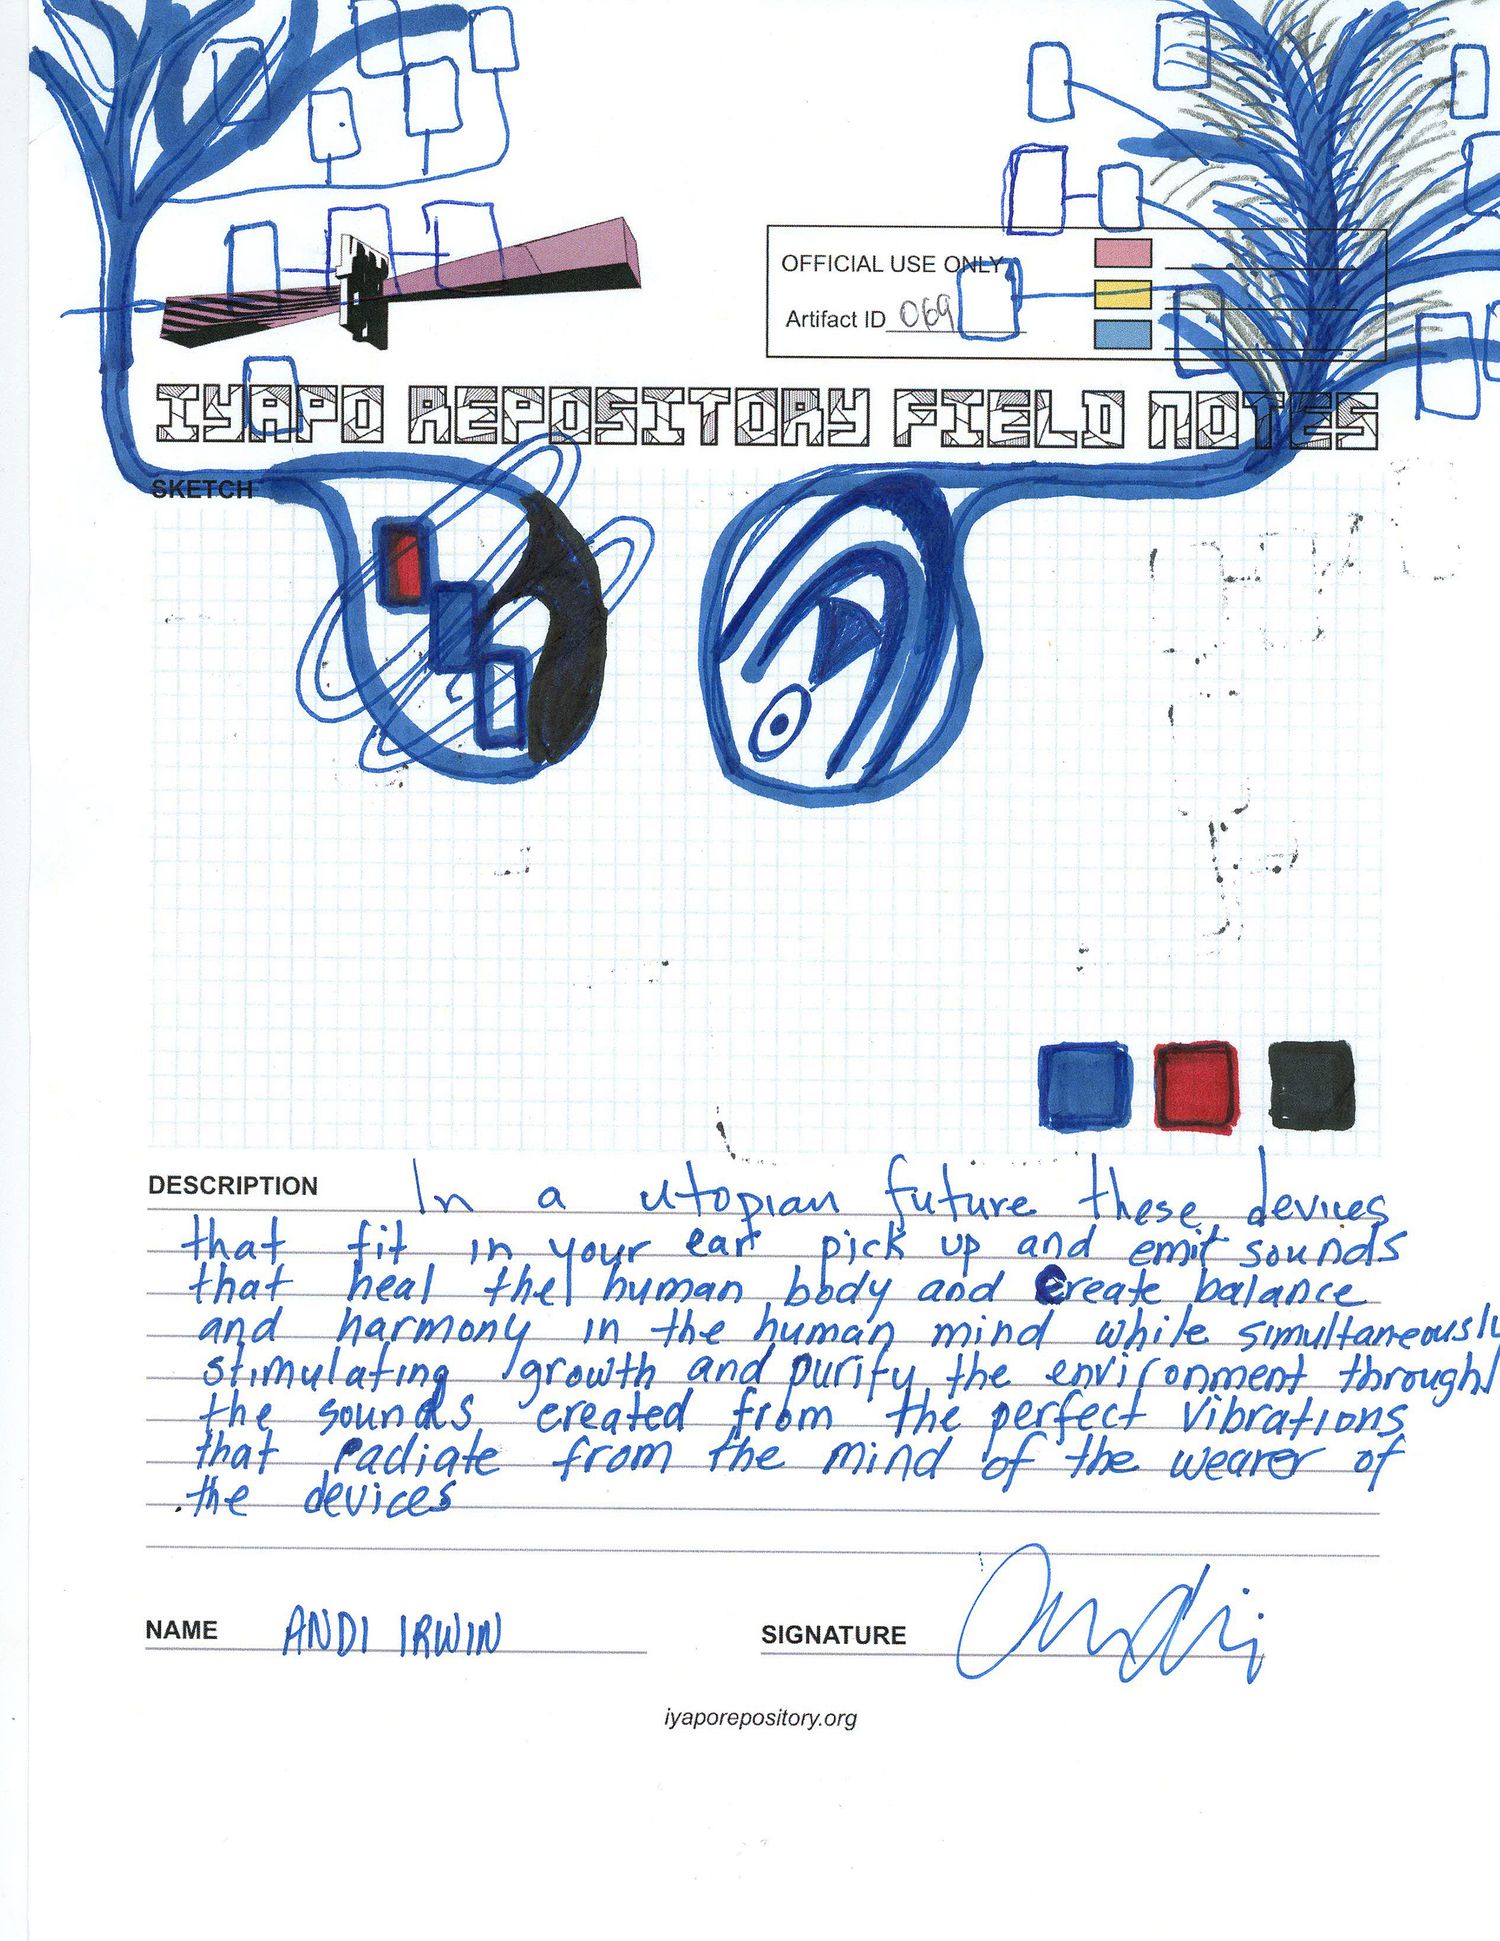 OFFICIAL USE ONLY
Artifact ID 069
IYAPO REPOSITORY FIELD NOTES
SKETCH
DESCRIPTION In a utopian future these devices
that fit in your ear pick up and emit sounds
that heal the human body and create balance
and harmony in the human mind while simultaneously
stimulating growth and purify the environment through
the sounds created from the perfect vibrations
that radiate from the mind of the wearer of
the devices
NAME ANDI IRWIN
SIGNATURE Andi
iyaporepository.org